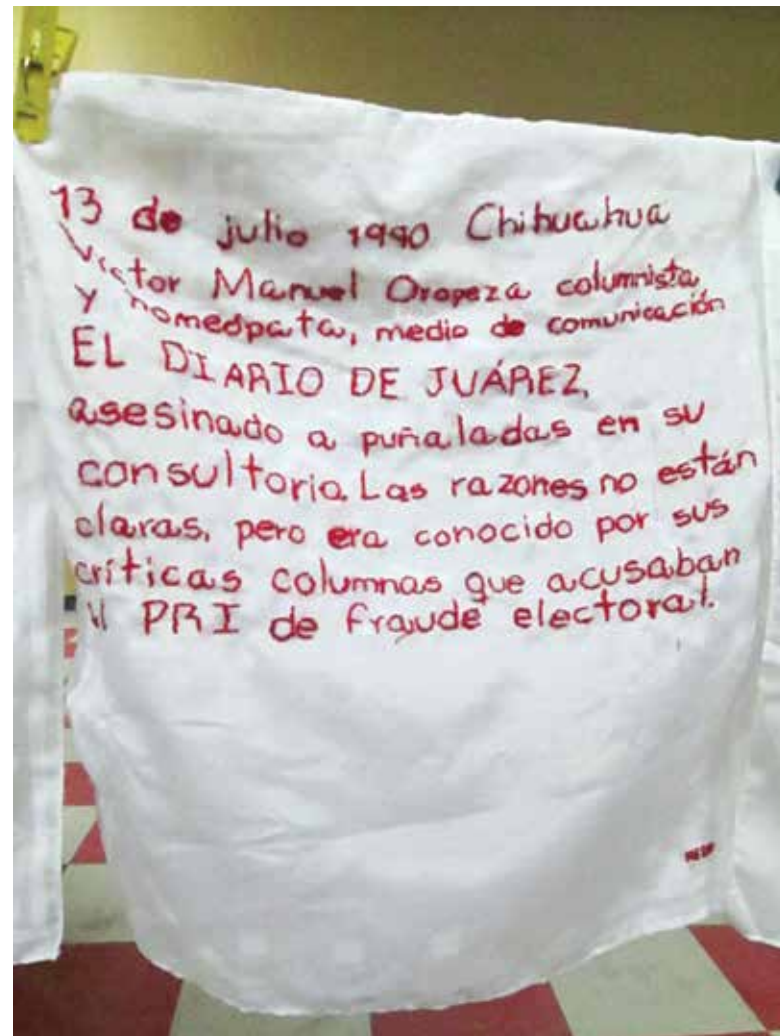 13 de julio 1990 Chihuahua
Víctor Manuel Oropeza columnista
y homeópata, medio de comunicación
EL DIARIO DE JUÁREZ,
asesinado a puñaladas en su
consultoria. Las razones no están
claras, pero era conocido por sus
críticas columnas que acusaban
al PRI de fraude electoral.